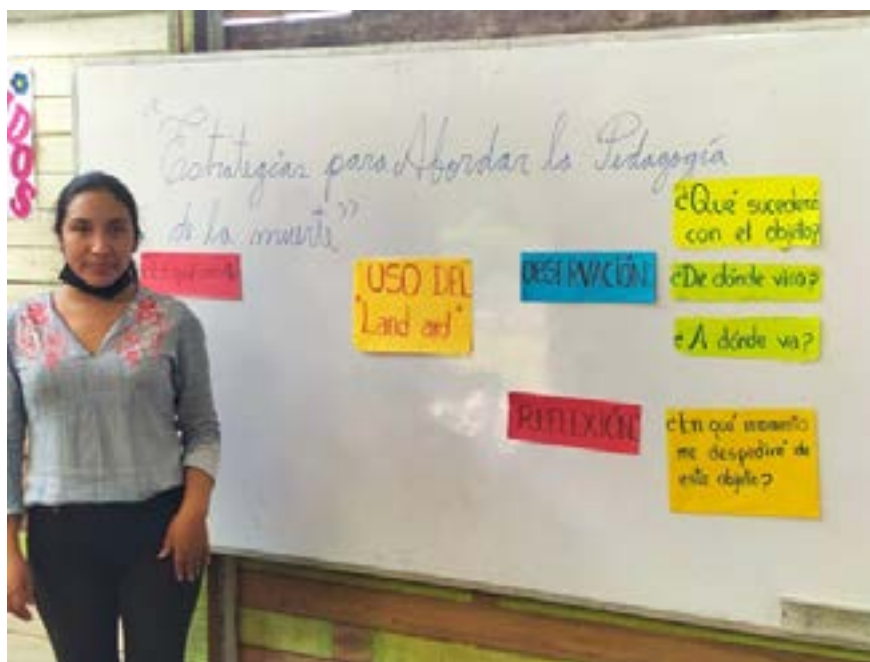 DOS
"Estrategias para Abordar la Pedagogía
de la muerte"
USO DEL
"Land ard"
OBSERVACIÓN
¿Qué sucederá
con el objeto?
¿De dónde vino?
¿A dónde va?
REFLEXIÓN
¿En qué momento
me despediré de
este objeto?